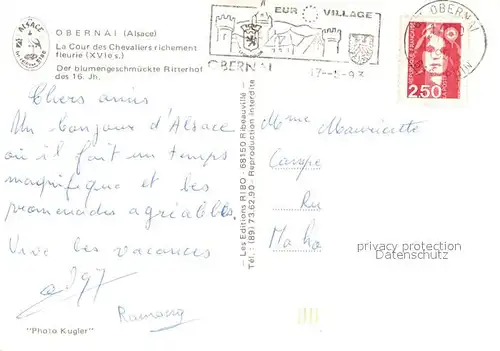 ALSACE
OBERNAI (Alsace)
La Cour des Chevaliers richement
fleurie (XVIe s.)
Der blumengeschmückte Ritterhof
des 16. Jh.
EUR VILLAGE
OBERNAI
OBERNAI
RHIN
2,50
Chers amis
Un bonjour d'Alsace
où il fait un temps
magnifique et les
promenades agréables.
Vive les vacances
Ramberg
"Photo Kugler"
- Les Editions RIBO - 68150 Ribeauvillé -
Tél.: (89) 73.62.90 - Reproduction interdite
Mme Mauricette
privacy protection
Datenschutz